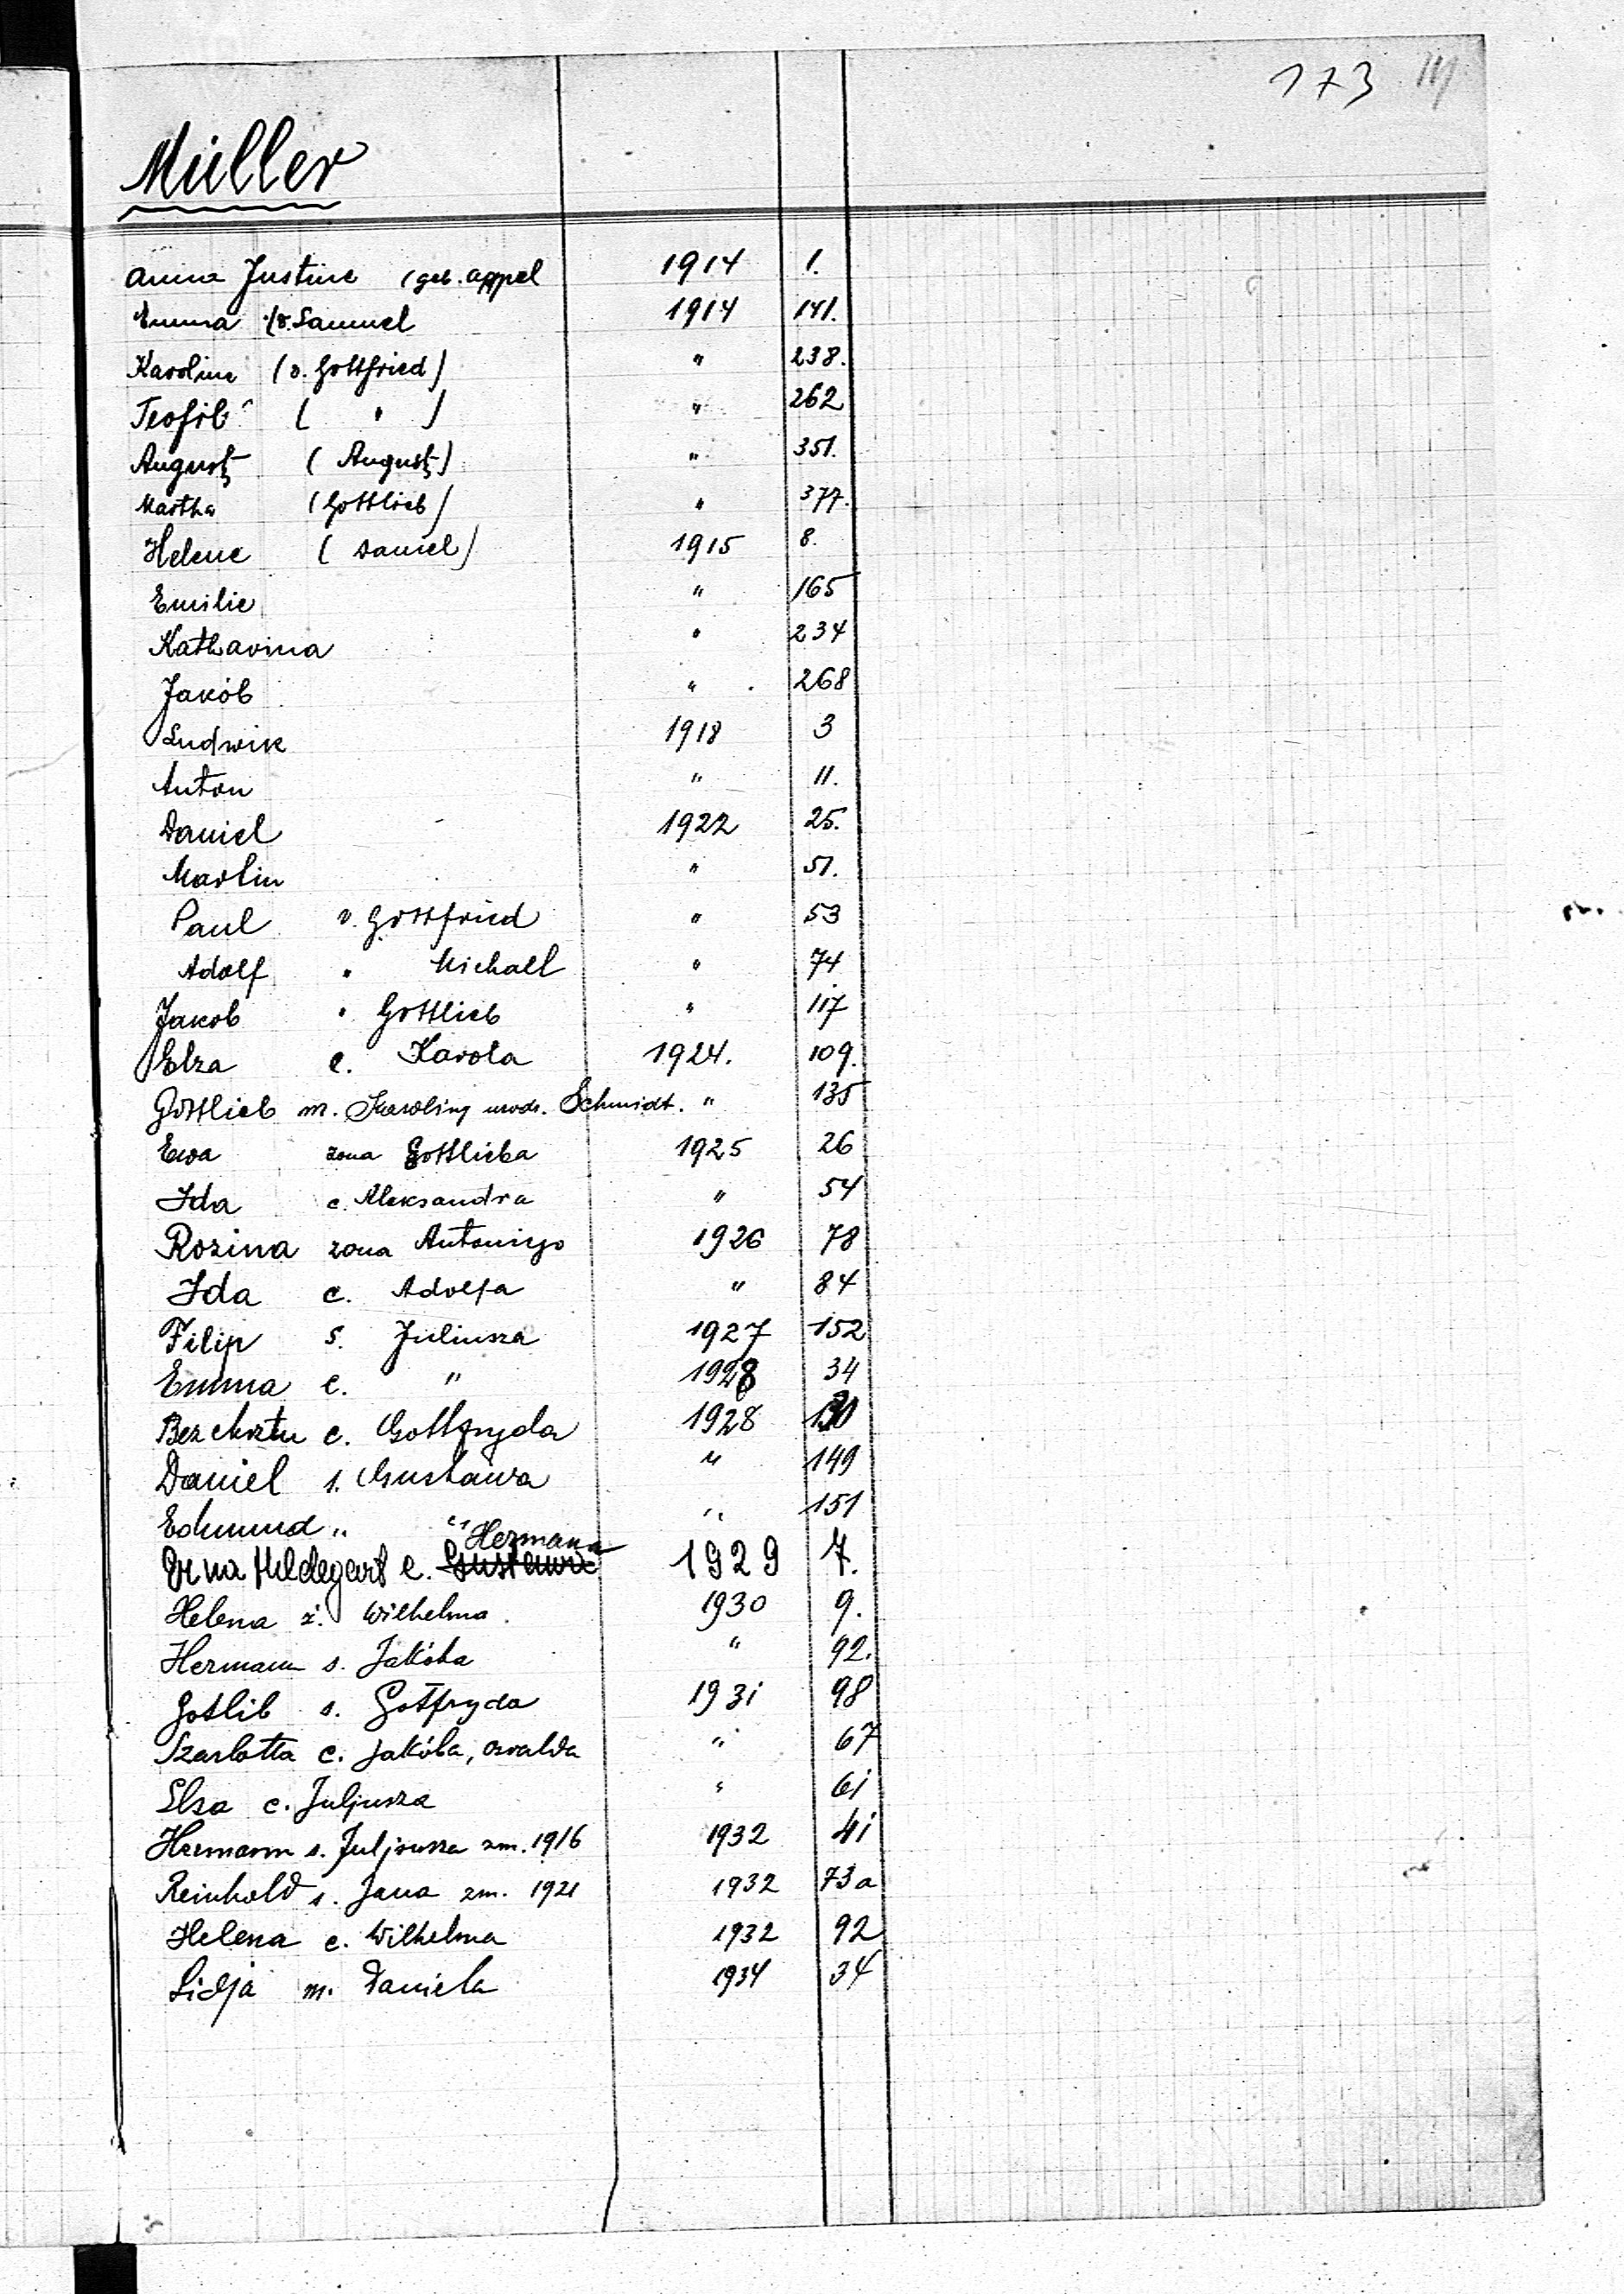 173
Müller
Anna Justine (geb. Appel 1914 1.
Emma (v. Samuel 1914 141.
Karoline (v. Gottfried) " 238.
Teofil ( " ) " 262
August (August) " 351.
Martha (Gottlieb) " 377.
Helene (Daniel) 1915 8.
Emilie " 165
Katharina " 234
Jakób " 268
Ludwik 1918 3
Anton " 11.
Daniel 1922 25.
Martin " 51.
Paul v. Gottfried " 53
Adolf " Michael " 74
Jakob " Gottlieb " 117
Elza c. Karola 1924. 109.
Gottlieb m. Karoliny urodz. Schmidt. " 135
Ewa zona Gottlieba 1925 26
Ida c. Aleksandra " 54
Rozina zona Antoniego 1926 78
Ida c. Adolfa " 84
Filip s. Juliusza 1927 152
Emma c. " 1928 34
Bez chrztu c. Gottfryda 1928
Daniel s. Gustawa " 149
Edmund " " " 151
Erna Hildegart c. Gustawa Hermana 1929 7.
Helena ż. Wilhelma. 1930 9.
Hermann s. Jakóba " 92.
Gotlib s. Gotfryda 1931 98
Szarlotta c. Jakóba, Oswalda " 67
Elsa c. Juljusza " 61
Hermann s. Juljusza zm. 1916 1932 41
Reinhold s. Jana zm. 1921 1932 73a
Helena c. Wilhelma 1932 92
Lidja m. Daniela 1934 34